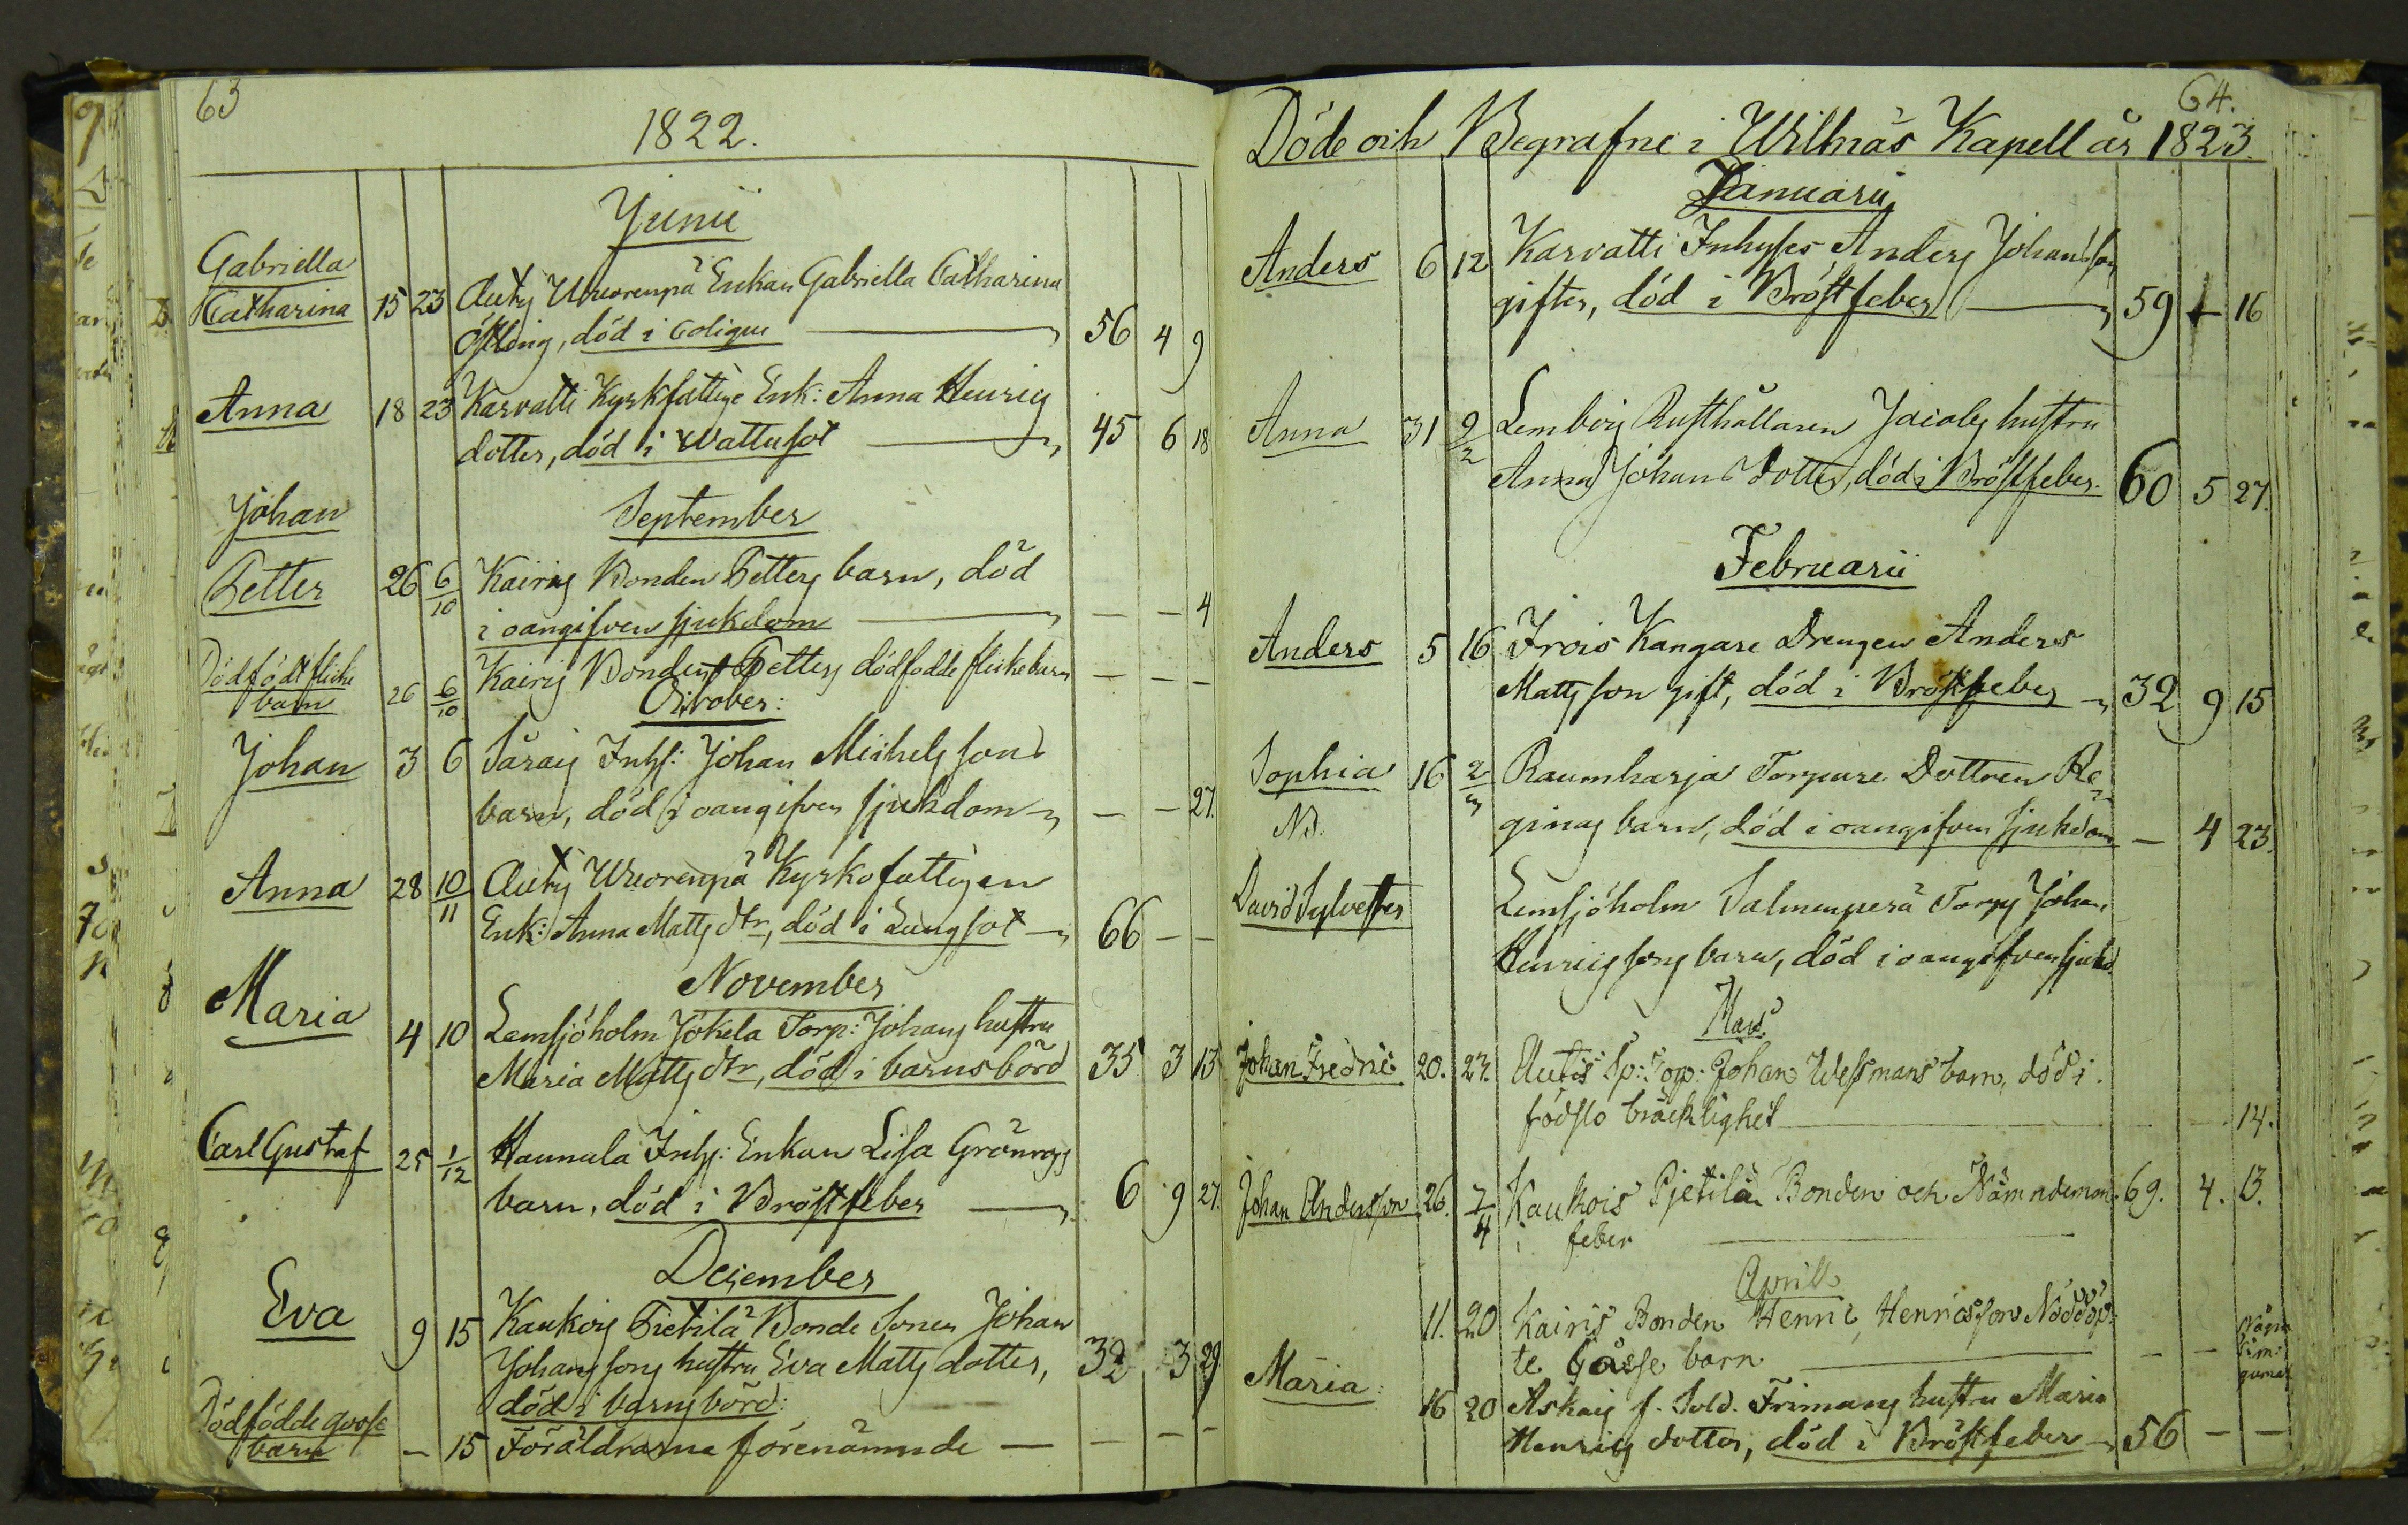 63
1822.
Junii
Gabriella
Catharina 15 23 Autis Uworenpä Enkan Gabriella Catharina
Östling, död i Colique 56 4 9
Anna 18 23 Karvatti Kyrkfattige Enk: Anna Henrics
dotter, död i Wattusot 45 6 18
September
Johan
Petter 26 6/10 Kairis Bonden Petters barn, död
i oangifven sjukdom — — 4
Dödfödt flicke
barn 26 6/10 Kairis Bonden Petters dödfödde flickebarn — — —
October:
Johan 3 6 Särais Inhs: Johan Michelssons
barn, död i oangifven sjukdom — — 27.
Anna 28 10/11 Autis Uworenpä Kyrkofattigen
Enk: Anna Matts dtr, död i Lungsot 66 — —
November
Maria 4 10 Lemsjöholm Jökela Torp: Johans hustru
Maria Matts dtr, död i barnsbörd 35 3 13
Carl Gustaf 25 1/12 Hannula Inhs: Enkan Lisa Grönroos
barn, död i Bröstfeber 6 9 27.
December
Eva 9 15 Kaukois Pietilä Bonde Sonen Johan
Johanssons hustru Eva Matts dotter, 32 3 29
död i barnsbörd:
Dödfödde gosse
barn — 15 Föräldrarna förenämnde — — — —
64.
Döde och Begrafne i Wilnäs Kapell år 1823.
Januarii
Anders 6 12 Karvatti Inhyses Anders Johansson
gifter, död i Bröstfeber 59 + 16
Anna 31 9/2 Lembois Rusthållaren Jacobs hustru
Anna Johans dotter, död i Bröstfeber. 60 5 27.
Februarii
Anders 5 16 Frois Kangare Drengen Anders
Mattsson gift, död i Bröstfeber 32 9 15
Sophia 16 2/3 Raumharja Torpare Dottren Re-
NB. ginas barn, död i oangifven sjukdom — 4 23.
David Sylvester Lemsjöholm Salmenperä Torps Johan
Henricssons barn, död i oangifven sjukd.
Mars
Johan Fredric 20. 27. Autis Sp: Torp: Johan Wessmans barn, död i
födslo bräcklighet — — 14.
Johan Andersson 26. 7/4 Kaukois Pjetilä Bonden och Nämndeman. 69. 4. 13.
i feber
Aprill
11. 20 Kairis Bonden Henric Henricsson Nöddöp-
te Gosse barn — — Några
tim:
gamal
Maria: 16 20 Askais f. Sold. Frimans hustru Maria
Henrics dotter, död i Bröstfeber 56 — —